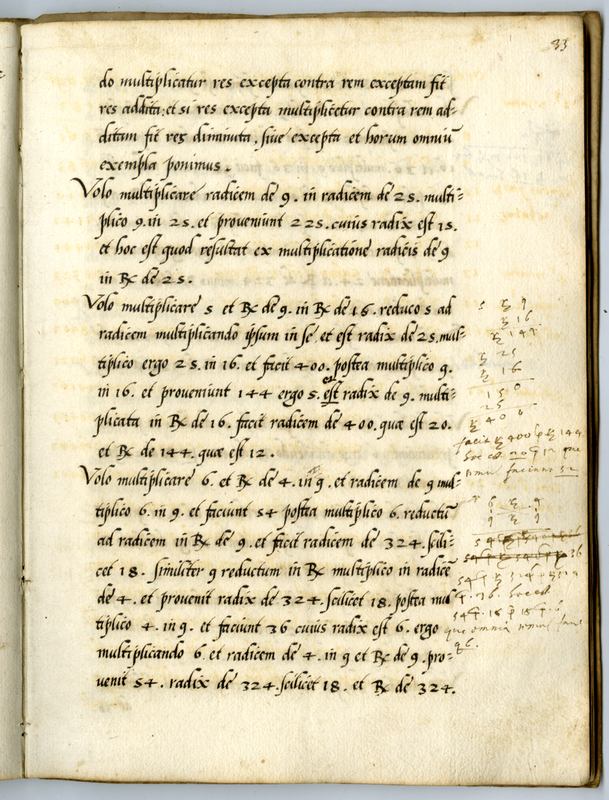 33
do multiplicatur res excepta contra rem exceptam fit
res addita: et si res excepta multiplicetur contra rem ad-
ditam fit res diminuta, siue excepta et horum omniũ
exempla ponimus.
Volo multiplicare radicem de 9. in radicem de 25. multi-
plico 9. in 25. et proueniunt 225. cuius radix est 15.
et hoc est quod resultat ex multiplicatione radicis de 9
in ℞ de 25.
Volo multiplicare 5 et ℞ de 9. in ℞ de 16. reduco 5 ad
radicem multiplicando ipsum in se et est radix de 25. mul-
tiplico ergo 25. in 16. et facit 400. postea multiplico 9.
in 16. et proueniunt 144 ergo 5. et radix de 9. multi-
plicata in ℞ de 16. facit radicem de 400. quæ est 20.
et ℞ de 144. quæ est 12.
Volo multiplicare 6. et ℞ de 4. in 9. et radicem de 9 mul-
tiplico 6. in 9. et faciunt 54 postea multiplico 6. reductũ
ad radicem in ℞ de 9. et facit radicem de 324. scili-
cet 18. similiter 9 reductum in ℞ multiplico in radicẽ
de 4. et prouenit radix de 324. scilicet 18. postea mul
tiplico 4. in 9. et faciunt 36 cuius radix est 6. ergo
multiplicando 6. et radicem de 4. in 9 et ℞ de 9. pro-
uenit 54. radix de 324. scilicet 18. et ℞ de 324.
5 ℞ 9
℞ 16
℞ 144
℞ 25
℞ 16
150
25
℞ 400
facit ℞ 400 p ℞ 144
hoc est 20 p 12 que
simul faciunt 32
6 ℞ 9
9 ℞ 9
hoc est
54 p. 18 p 18 p. 6
que omnia simul faciunt
96.